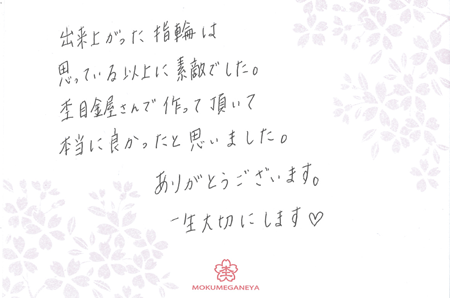 出来上がった指輪は
思っている以上に素敵でした。
杢目金屋さんで作って頂いて
本当に良かったと思いました。
ありがとうございます。
一生大切にします♡
杢
MOKUMEGANEYA